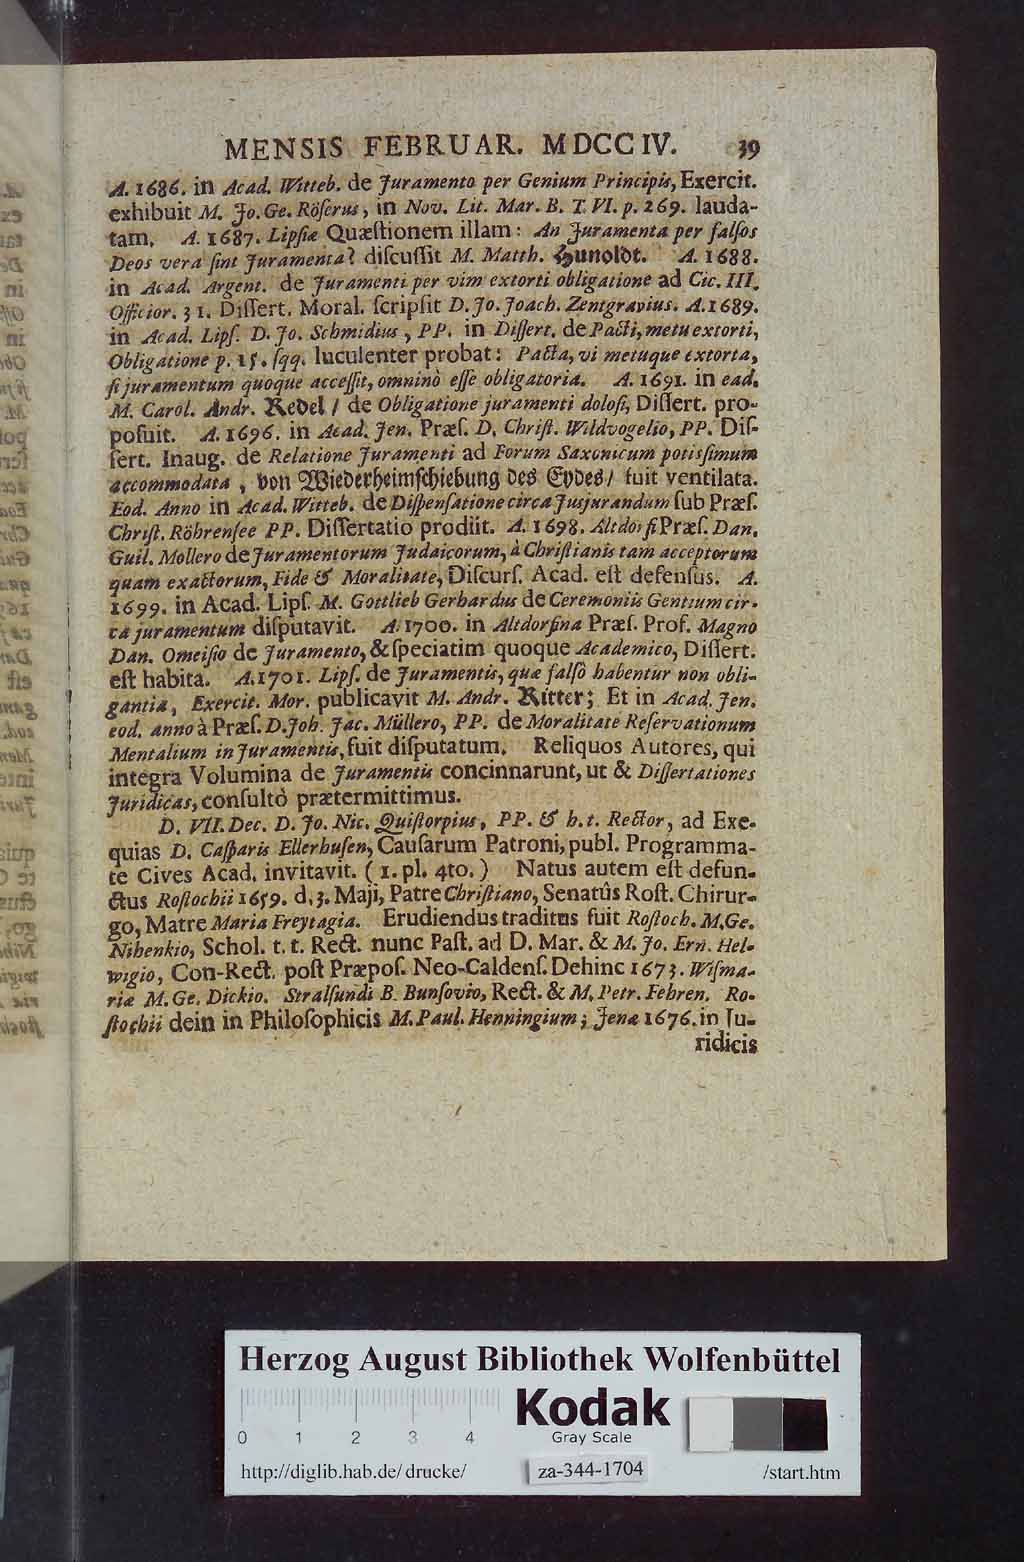 MENSIS FEBRUAR. MDCCIV. 39
A. 1686. in Acad. Witteb. de Juramento per Genium Principis, Exercit.
exhibuit M. Jo. Ge. Röſerus, in Nov. Lit. Mar. B. T. VI. p. 269. lauda-
tam. A. 1687. Lipſiæ Quæſtionem illam: An Juramenta per falſos
Deos vera ſint Juramenta? diſcuſſit M. Matth. Hunoldt. A. 1688.
in Acad. Argent. de Juramenti per vim extorti obligatione ad Cic. III.
Officior. 31. Diſſert. Moral. ſcripſit D. Jo. Joach. Zentgravius. A. 1689.
in Acad. Lipſ. D. Jo. Schmidius, PP. in Diſſert. de Pacti, metu extorti,
Obligatione p. 15. ſqq. luculenter probat: Pacta, vi metuque extorta,
ſi juramentum quoque acceſſit, omninò eſſe obligatoria. A. 1691. in ead.
M. Carol. Andr. Redel / de Obligatione juramenti doloſi, Diſſert. pro-
poſuit. A. 1696. in Acad. Jen. Præſ. D. Chriſt. Wildvogelio, PP. Diſ-
ſert. Inaug. de Relatione Juramenti ad Forum Saxonicum potiſſimum
accommodata, von Wiederheimſchiebung des Eydes / fuit ventilata.
Eod. Anno in Acad. Witteb. de Diſpenſatione circa Jusjurandum ſub Præſ.
Chriſt. Röhrenſee PP. Diſſertatio prodiit. A. 1698. Altdorfi Præſ. Dan.
Guil. Mollero de Juramentorum Judaicorum, à Chriſtianis tam acceptorum
quam exactorum, Fide & Moralitate, Diſcurſ. Acad. eſt defenſus. A.
1699. in Acad. Lipſ. M. Gottlieb Gerhardus de Ceremoniis Gentium cir-
ca juramentum diſputavit. A. 1700. in Altdorfina Præſ. Prof. Magno
Dan. Omeiſio de Juramento, & ſpeciatim quoque Academico, Diſſert.
eſt habita. A. 1701. Lipſ. de Juramentis, quæ falſò habentur non obli-
gantia, Exercit. Mor. publicavit M. Andr. Ritter; Et in Acad. Jen.
eod. anno à Præſ. D. Joh. Jac. Müllero, PP. de Moralitate Reſervationum
Mentalium in Juramentis, fuit diſputatum. Reliquos Autores, qui
integra Volumina de Juramentis concinnarunt, ut & Diſſertationes
Juridicas, conſultò prætermittimus.
D. VII. Dec. D. Jo. Nic. Quiſtorpius, PP. & h. t. Rector, ad Exe-
quias D. Caſparis Ellerhuſen, Cauſarum Patroni, publ. Programma-
te Cives Acad. invitavit. (1. pl. 4to.) Natus autem eſt defun-
ctus Roſtochii 1659. d. 3. Maji, Patre Chriſtiano, Senatûs Roſt. Chirur-
go, Matre Maria Freytagia. Erudiendus traditus fuit Roſtoch. M. Ge.
Nihenkio, Schol. t. t. Rect. nunc Paſt. ad D. Mar. & M. Jo. Ern. Hel-
wigio, Con-Rect. poſt Præpoſ. Neo-Caldenſ. Dehinc 1673. Wiſma-
riæ M. Ge. Dickio. Stralſundi B. Bunſovio, Rect. & M. Petr. Fehren. Ro-
ſtochii dein in Philoſophicis M. Paul. Henningium; Jenæ 1676. in Ju-
ridicis
Herzog August Bibliothek Wolfenbüttel
Kodak
0 1 2 3 4
Gray Scale
http://diglib.hab.de/drucke/ za-344-1704 /start.htm